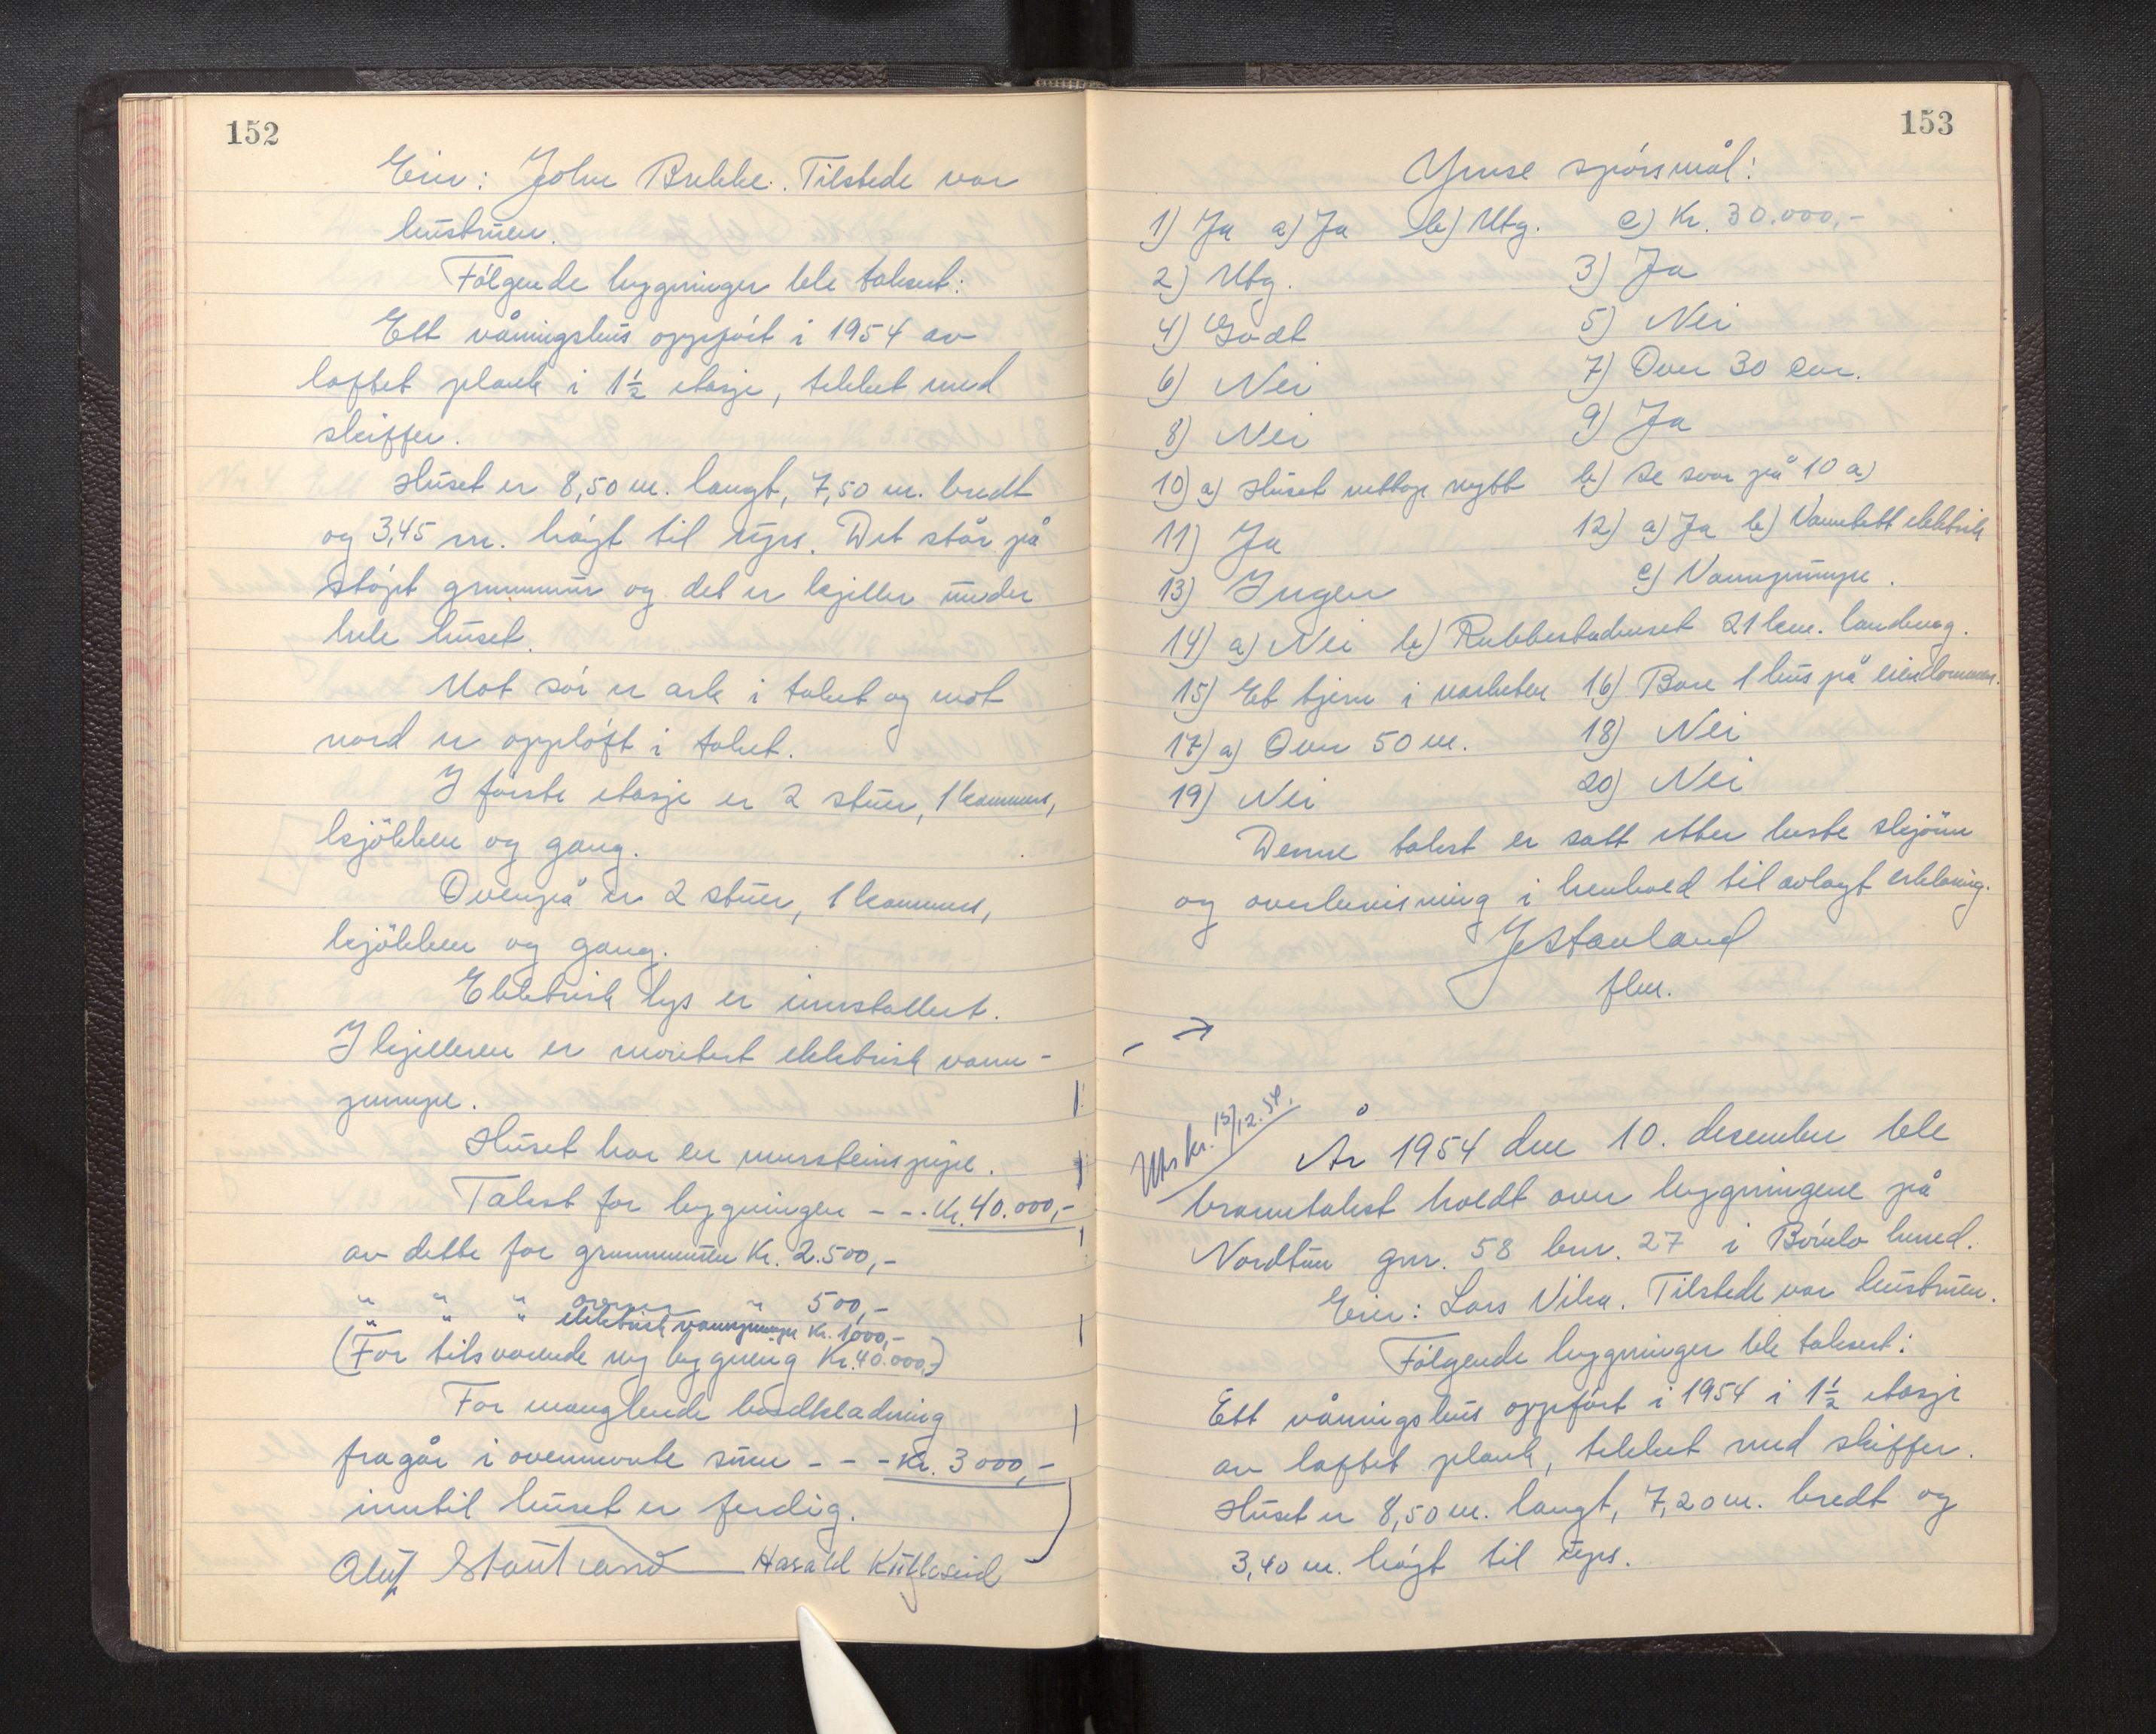 152
Eier: John Brekke. Tilstede var
hustruen.
Følgende bygninger ble taksert:
Ett våningshus oppført i 1954 av
laftet plank i 1½ etasje, tekket med
skiffer.
Huset er 8,50 m. langt, 7,50 m. bredt
og 3,45 m. høgt til røyst. Det står på
støpt grunnmur og det er kjeller under
hele huset.
Mot sør er ark i taket og mot
nord er oppløft i taket.
I første etasje er 2 stuer, 1 kammers,
kjökken og gang.
Ovenpå er 2 stuer, 1 kammers,
kjökken og gang.
Elektrisk lys er innstallert.
I kjelleren er montert elektrisk vann-
pumpe.
Huset har en mursteinspipe.
Takst for bygningen - - - Kr. 40.000,-
av dette for grunnmuren Kr. 2.500,-
" " " " 500,-
" " " elektrisk vannpumpe Kr. 1000,-
(For tilsvarende ny bygning Kr. 40.000,-)
For manglende bordkledning
fragår i ovennevnte sum - - - Kr. 3000,-
inntil huset er ferdig.
Oluf Stautland Harald
153
Ymse spörsmål:
1) Ja a) Ja b) Utg. c) Kr. 30.000,-
2) Utg. 3) Ja
4) Godt 5) Nei
6) Nei 7) Over 30 cm.
8) Nei 9) Ja
10) a) Huset nettopp nytt b) Se svar på 10 a)
11) Ja 12) a) Ja b) Vanntett elektrisk
13) Ingen c) Vannpumpe.
14) a) Nei b) Rubbestadneset 21 km. landveg.
15) Et tjern i nærheten 16) Bare 1 hus på eiendommen.
17) a) Over 50 m. 18) Nei
19) Nei 20) Nei
Denne takst er satt etter beste skjönn
og overbevisning i henhold til avlagt erklæring.
J Stavland
flm.
→
Utskr. 15/12.54.
År 1954 den 10. desember ble
branntakst holdt over bygningene på
Nordtun gnr. 58 bnr. 27 i Börnlo herred.
Eier: Lars Vika. Tilstede var hustruen.
Følgende bygninger ble taksert:
Ett våningshus oppført i 1954 i 1½ etasje
av laftet plank, tekket med skiffer.
Huset er 8,50 m. langt, 7,20 m. bredt og
3,40 m. høgt til røyst.